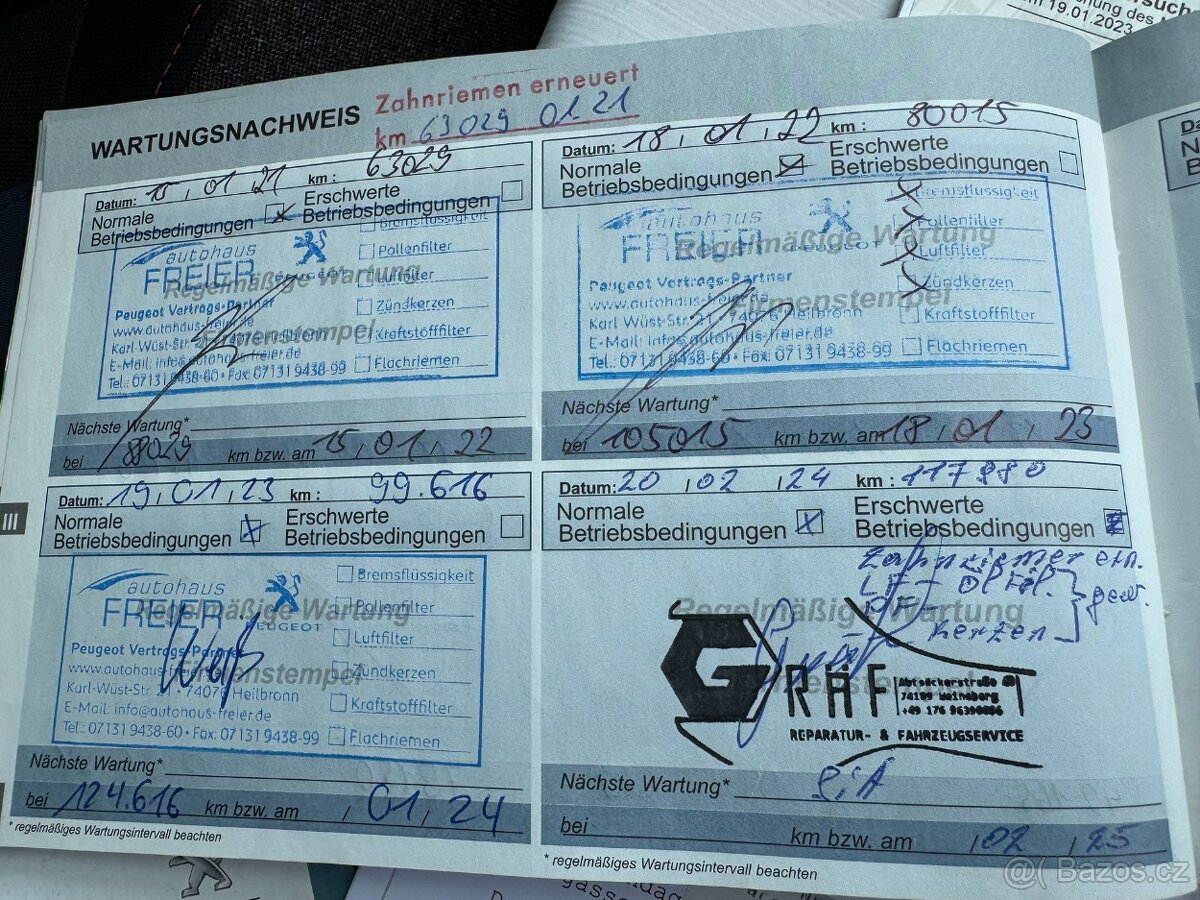 m 19.01.2023
WARTUNGSNACHWEIS
Zahnriemen erneuert
km 63029 01.21
Datum: 15, 01, 21 km: 63029
Normale Betriebsbedingungen
Erschwerte Betriebsbedingungen
Regelmäßige Wartung
Firmenstempel
autohaus
FREIER
PEUGEOT
Peugeot Vertrags-Partner
www.autohaus-freier.de
Karl-Wüst-Str. 21 • 74076 Heilbronn
E-Mail: info@autohaus-freier.de
Tel.: 07131 9438-60 • Fax: 07131 9438-99
Bremsflüssigkeit
Pollenfilter
Luftfilter
Zündkerzen
Kraftstofffilter
Flachriemen
Nächste Wartung*
bei 88029 km bzw. am 15, 01, 22
Datum: 18, 01, 22 km: 80015
Normale Betriebsbedingungen
Erschwerte Betriebsbedingungen
Regelmäßige Wartung
Firmenstempel
autohaus
FREIER
Peugeot Vertrags-Partner
www.autohaus-freier.de
Karl-Wüst-Str. 21 • 74076 Heilbronn
E-Mail: info@autohaus-freier.de
Tel.: 07131 9438-60 • Fax: 07131 9438-99
Bremsflüssigkeit
Pollenfilter
Luftfilter
Zündkerzen
Kraftstofffilter
Flachriemen
Nächste Wartung*
bei 105015 km bzw. am 18, 01, 23
III
Datum: 19, 01, 23 km: 99.616
Normale Betriebsbedingungen
Erschwerte Betriebsbedingungen
Regelmäßige Wartung
Firmenstempel
autohaus
FREIER
PEUGEOT
Peugeot Vertrags-Partner
www.autohaus-freier.de
Karl-Wüst-Str. 21 • 74076 Heilbronn
E-Mail: info@autohaus-freier.de
Tel.: 07131 9438-60 • Fax: 07131 9438-99
Bremsflüssigkeit
Pollenfilter
Luftfilter
Zündkerzen
Kraftstofffilter
Flachriemen
Nächste Wartung*
bei 124.616 km bzw. am , 01, 24
* regelmäßiges Wartungsintervall beachten
Datum: 20, 02, 24 km: 117980
Normale Betriebsbedingungen
Erschwerte Betriebsbedingungen
Zahnriemen ern.
Kerzen
Regelmäßige Wartung
GRÄF
Abtsäckerstraße
74189 Weinsberg
REPARATUR- & FAHRZEUGSERVICE
Nächste Wartung*
bei km bzw. am , 02, 25
* regelmäßiges Wartungsintervall beachten
Bazos.cz